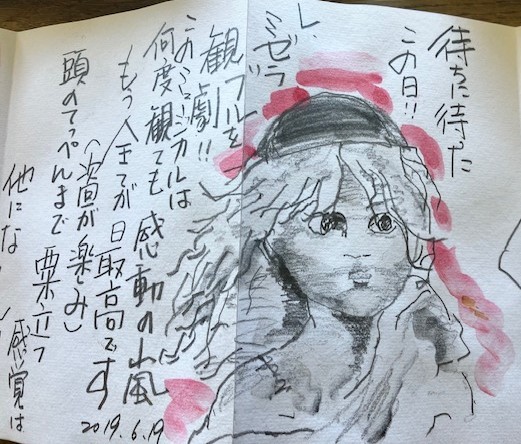 待ちに待った
この日!!
レ・ミゼラブルを
観劇!!
このミュージカルは
何度観ても感動の嵐
もう全てが最高です
(次回が楽しみ)
頭のてっぺんまで粟立つ感覚は
他にな
2019.6.19